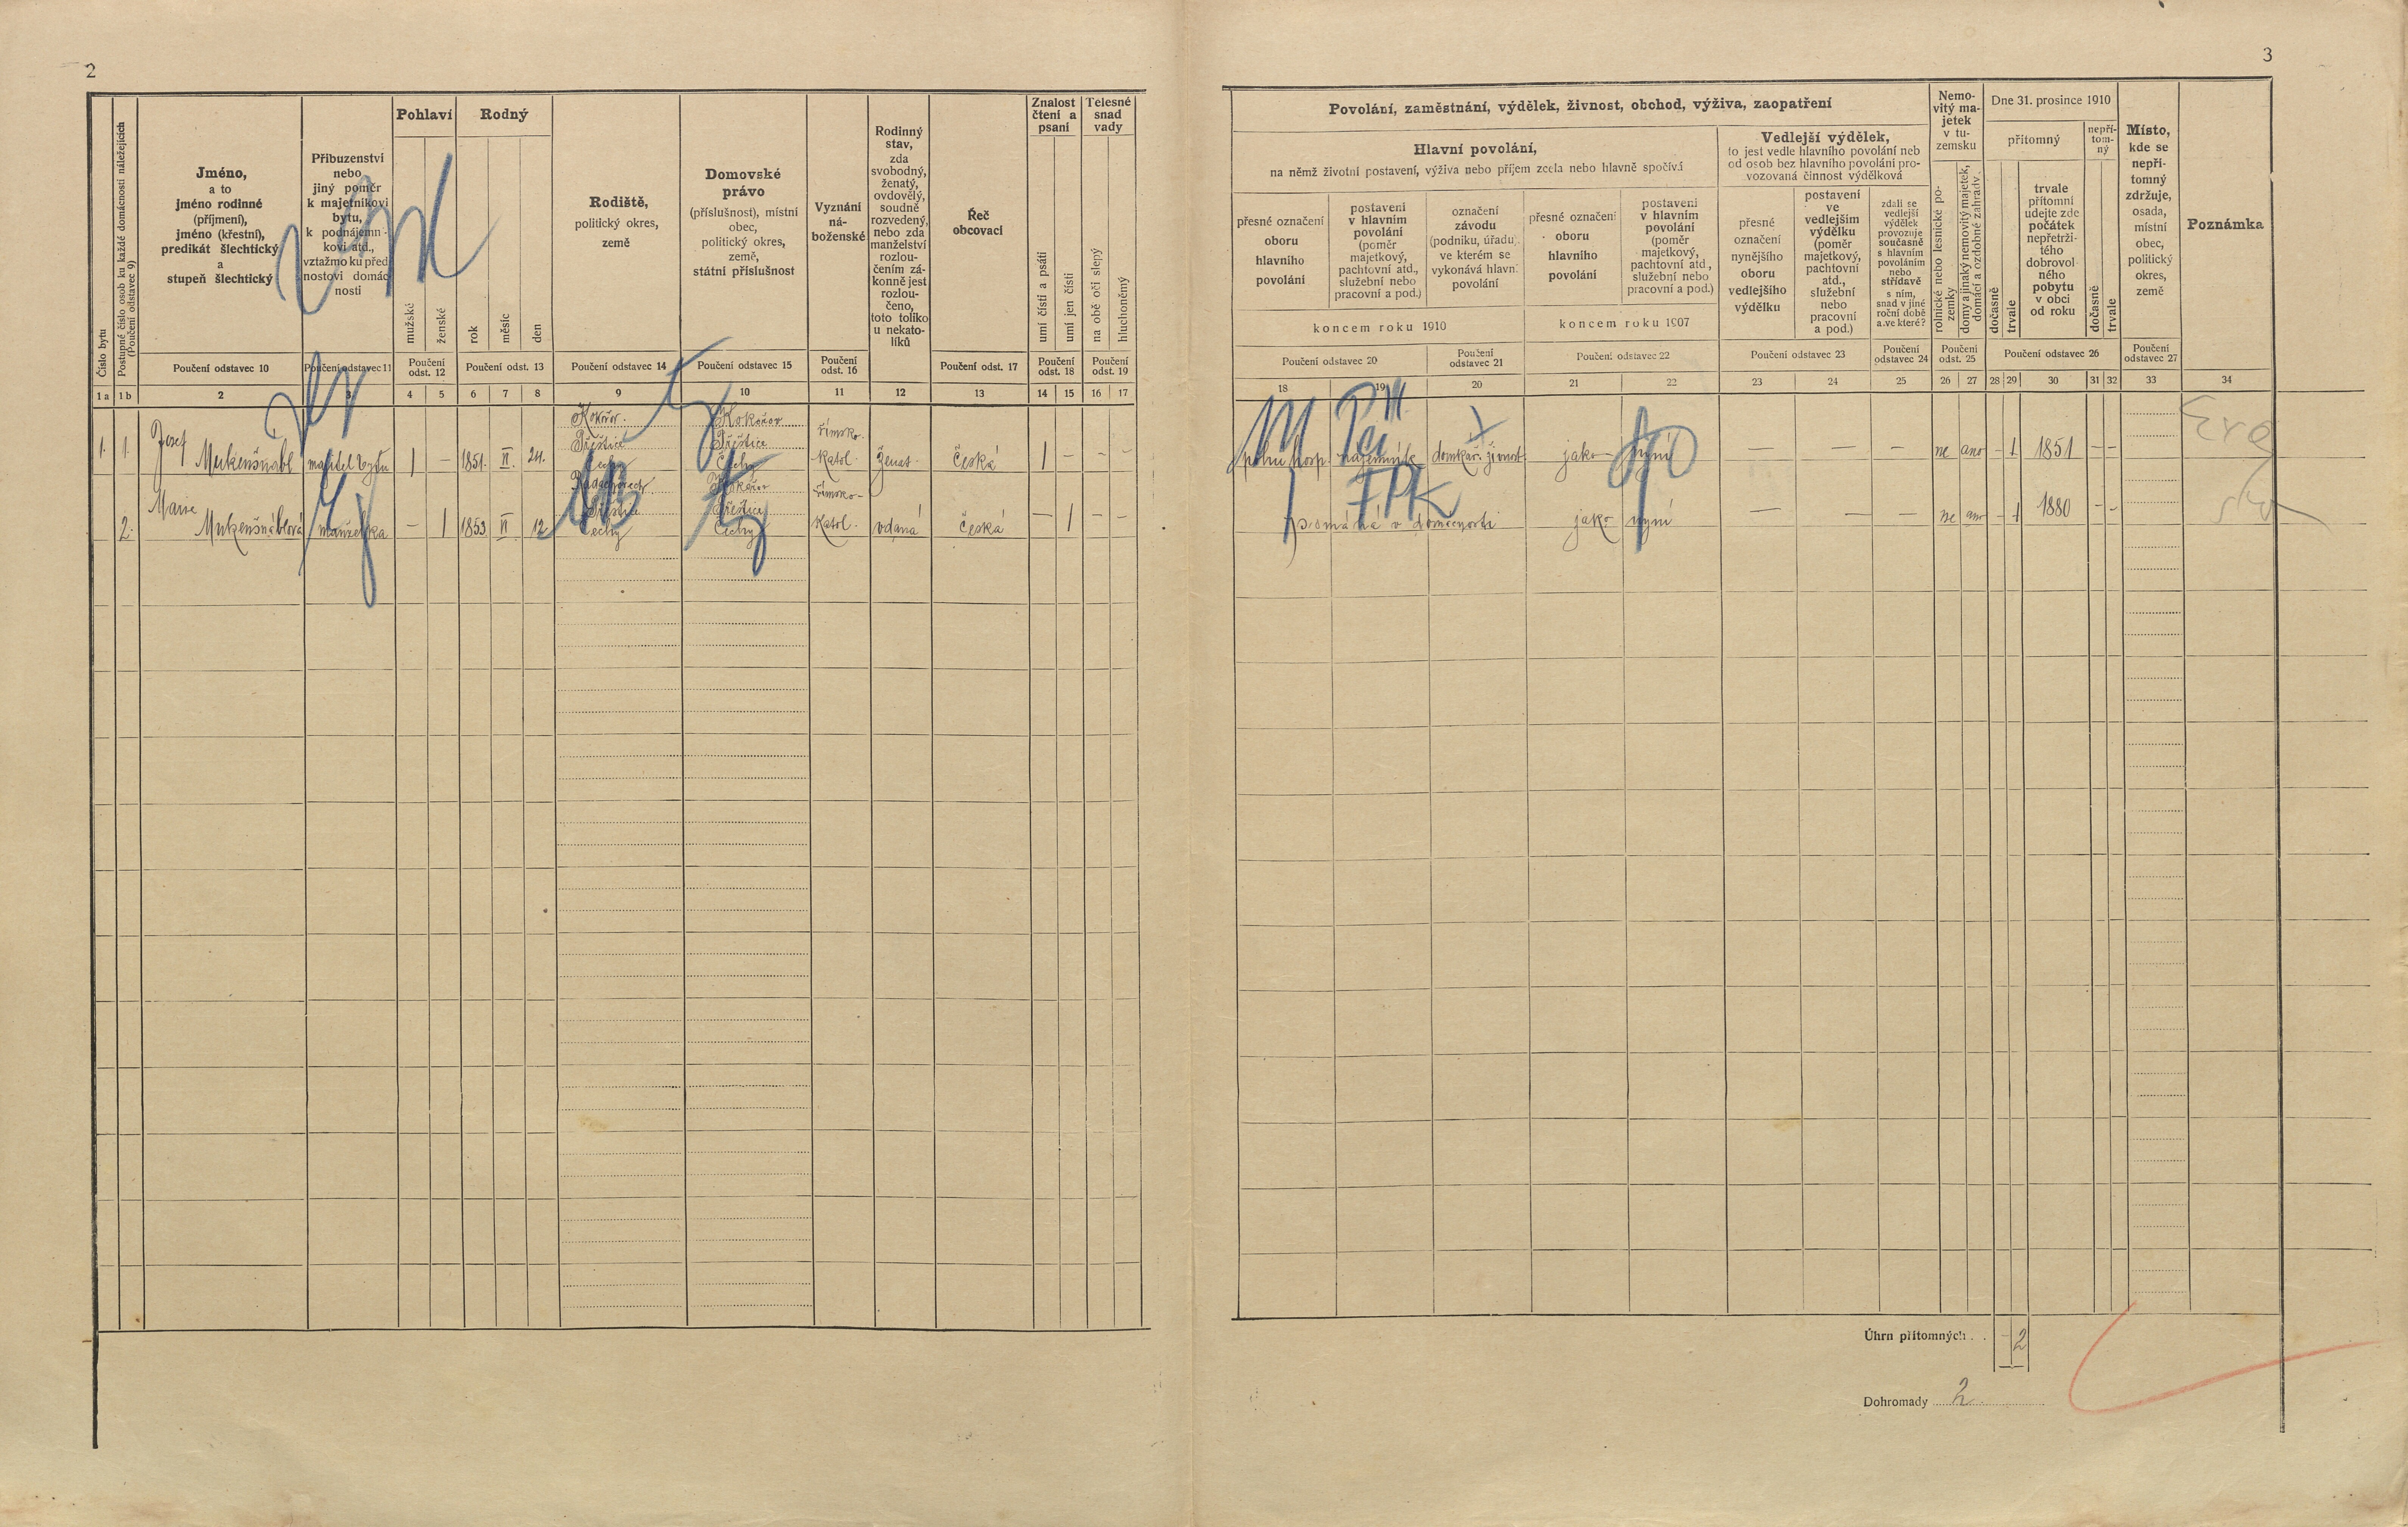 2
Číslo bytu
Postupné číslo osob ku každé domácnosti náležejících
(Poučení odstavec 9)
Jméno,
a to
jméno rodinné
(příjmení),
jméno (křestní),
predikát šlechtický
a
stupeň šlechtický
Příbuzenství
nebo
jiný poměr
k majetníkovi
bytu,
k podnájemní-
kovi atd.,
vztažmo ku před
nostovi domác
nosti
Pohlaví
mužské
ženské
Rodný
rok
měsíc
den
Rodiště,
politický okres,
země
Domovské
právo
(příslušnost), místní
obec,
politický okres,
země,
státní příslušnost
Vyznání
ná-
boženské
Rodinný
stav,
zda
svobodný,
ženatý,
ovdovělý,
soudně
rozvedený,
nebo zda
manželství
rozlou-
čením zá-
konně jest
rozlou-
čeno,
toto toliko
u nekato-
líků
Řeč
obcovací
Znalost
čtení a
psaní
umí čísti a psáti
umí jen čísti
Tělesné
snad
vady
na obě oči slepý
hluchoněmý
Poučení odstavec 10
Poučení odstavec 11
Poučení
odst. 12
Poučení odst. 13
Poučení odstavec 14
Poučení odstavec 15
Poučení
odst. 16
Poučení odst. 17
Poučení
odst. 18
Poučení
odst. 19
1 a 1 b 2 3 4 5 6 7 8 9 10 11 12 13 14 15 16 17
Kokořov. Kokořov
Josef Přeštice Přeštice římsko-
1. 1. majitel bytu 1 – 1851. II. 24. Čechy Čechy katol. ženat. Česká 1 – – –
Kokořov
Marie Přeštice Přeštice římsko-
2. manželka – 1 1853 VI 12 Čechy Čechy katol. vdaná Česká – 1 – –
3
Povolání, zaměstnání, výdělek, živnost, obchod, výživa, zaopatření
Hlavní povolání,
na němž životní postavení, výživa nebo příjem zcela nebo hlavně spočívá
přesné označení
oboru
hlavního
povolání
postavení
v hlavním
povolání
(poměr
majetkový,
pachtovní atd.,
služební nebo
pracovní a pod.)
označení
závodu
(podniku, úřadu),
ve kterém se
vykonává hlavní
povolání
koncem roku 1910
přesné označení
oboru
hlavního
povolání
postavení
v hlavním
povolání
(poměr
majetkový,
pachtovní atd.,
služební nebo
pracovní a pod.)
koncem roku 1907
Vedlejší výdělek,
to jest vedle hlavního povolání neb
od osob bez hlavního povolání pro-
vozovaná činnost výdělková
přesné
označení
nynějšího
oboru
vedlejšího
výdělku
postavení
ve
vedlejším
výdělku
(poměr
majetkový,
pachtovní
atd.,
služební
nebo
pracovní
a pod.)
zdali se
vedlejší
výdělek
provozuje
současně
s hlavním
povoláním
nebo
střídavě
s ním,
snad v jiné
roční době
a ve které?
Nemo-
vitý ma-
jetek
v tu-
zemsku
rolnické nebo lesnické po-
zemky
domy a jinaký nemovitý majetek,
domácí a ozdobné zahrady
Dne 31. prosince 1910
přítomný
dočasně
trvale
trvale
přítomní
udejte zde
počátek
nepřetrži-
tého
dobrovol
ného
pobytu
v obci
od roku
nepří-
tom-
ný
dočasně
trvale
Místo,
kde se
nepří-
tomný
zdržuje,
osada,
místní
obec,
politický
okres,
země
Poznámka
Poučení odstavec 20
Poučení
odstavec 21
Poučení odstavec 22
Poučení odstavec 23
Poučení
odstavec 24
Poučení
odst. 25
Poučení odstavec 26
Poučení
odstavec 27
18 19 20 21 22 23 24 25 26 27 28 29 30 31 32 33 34
polní hosp. domkář. živnost jako nyní — — — ne ano – 1 1851 – –
pomáhá v domácnosti jako nyní — — — ne ano – 1 1880 – –
Úhrn přítomných . . – 2
Dohromady 2